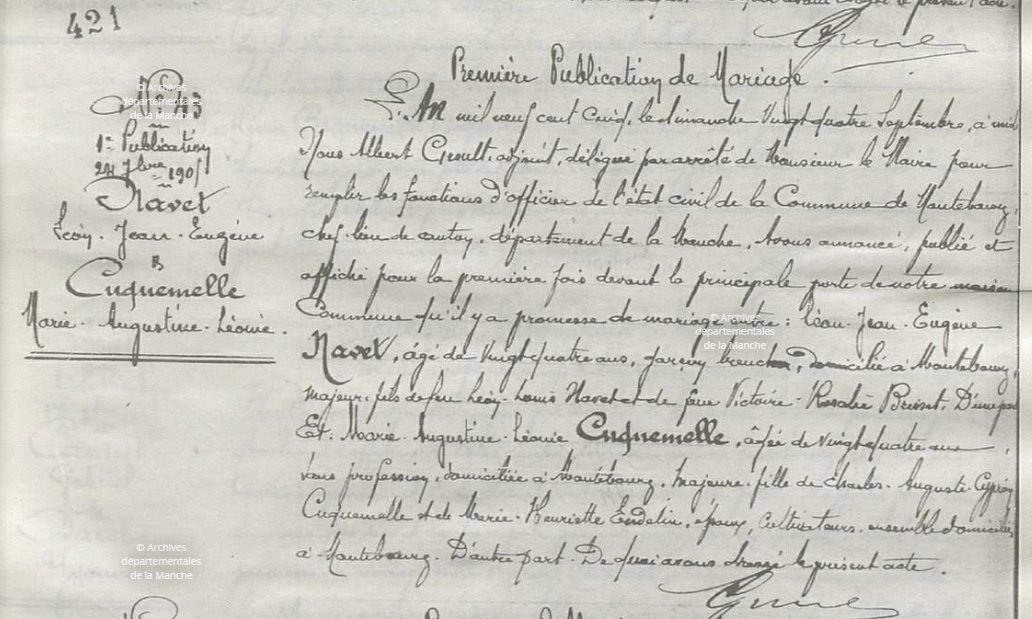 421
Première Publication de Mariage.
N° 43
1re Publication
24 7bre 1905
Navet
Léon. Jean. Eugène
&
Cuquemelle
Marie. Augustine. Léonie.
L'An mil neuf cent Cinq, le dimanche Vingt quatre Septembre, à midi
Nous Albert Groult, adjoint, délégué par arrêté de Monsieur le Maire pour
remplir les fonctions d'officier de l'état civil de la Commune de Montebourg,
chef-lieu de canton, département de la Manche, Avons annoncé, publié et
affiché pour la première fois devant la principale porte de notre maison
Commune qu'il y a promesse de mariage entre : Léon. Jean. Eugène
Navet, âgé de Vingt quatre ans, domicilié à Montebourg,
majeur, fils de feu Léon. Louis Navet et de feue Victoire. Rosalie D'une part
Et: Marie. Augustine. Léonie Cuquemelle, âgée de Vingt quatre ans,
sans profession, domiciliée à Montebourg, majeure, fille de Charles. Auguste. Cyprien
Cuquemelle et de Marie. Henriette Endelin, époux, Cultivateurs, ensemble domiciliés
à Montebourg. D'autre part. De quoi avons dressé le présent acte.
© Archives
départementales
de la Manche
© Archives
départementales
de la Manche
© Archives
départementales
de la Manche